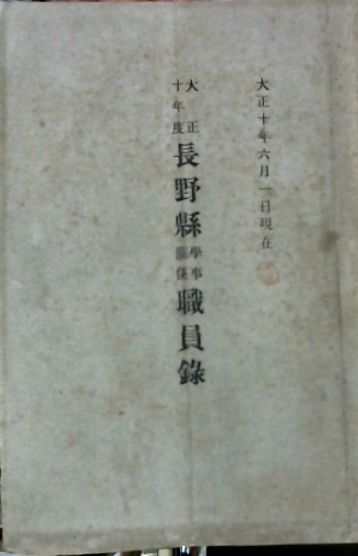 大正十年六月一日現在
大正十年度長野縣學事關係職員錄